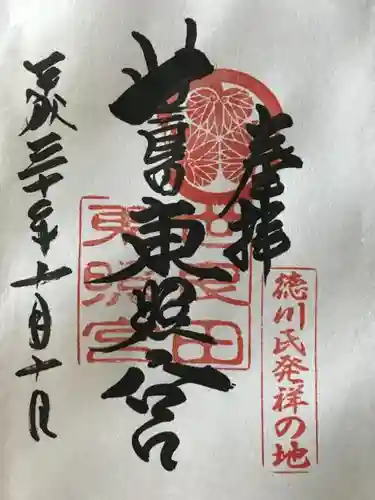 奉拝
徳川氏発祥の地
世良田東照宮
世良田
東照宮
平成三十年十月十日